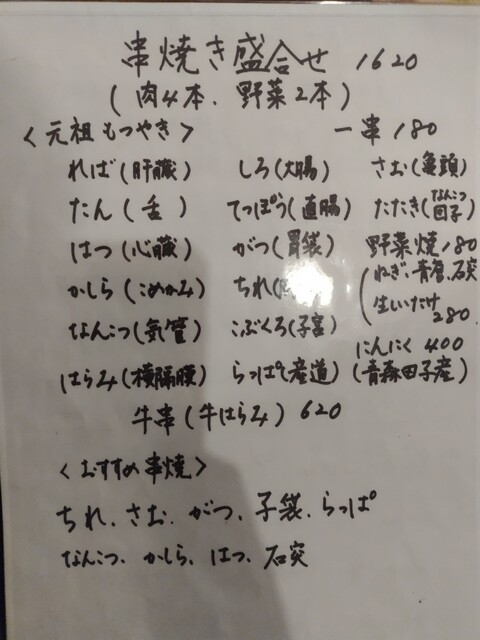 串焼き盛合せ 1620
(肉4本、野菜2本)
<元祖もつやき> 一串180
れば(肝臓) しろ(大腸) さお(亀頭)
たん(舌) てっぽう(直腸) たたき(なんこつ団子)
はつ(心臓) がつ(胃袋) 野菜焼180
かしら(こめかみ) ちれ( (ねぎ、青唐、石突
生いたけ 280
なんこつ(気管) こぶくろ(子宮) にんにく 400
はらみ(横隔膜) らっぱ(産道) (青森田子産)
牛串(牛はらみ) 620
<おすすめ串焼>
ちれ、さお、がつ、子袋、らっぱ
なんこつ、かしら、はつ、石突